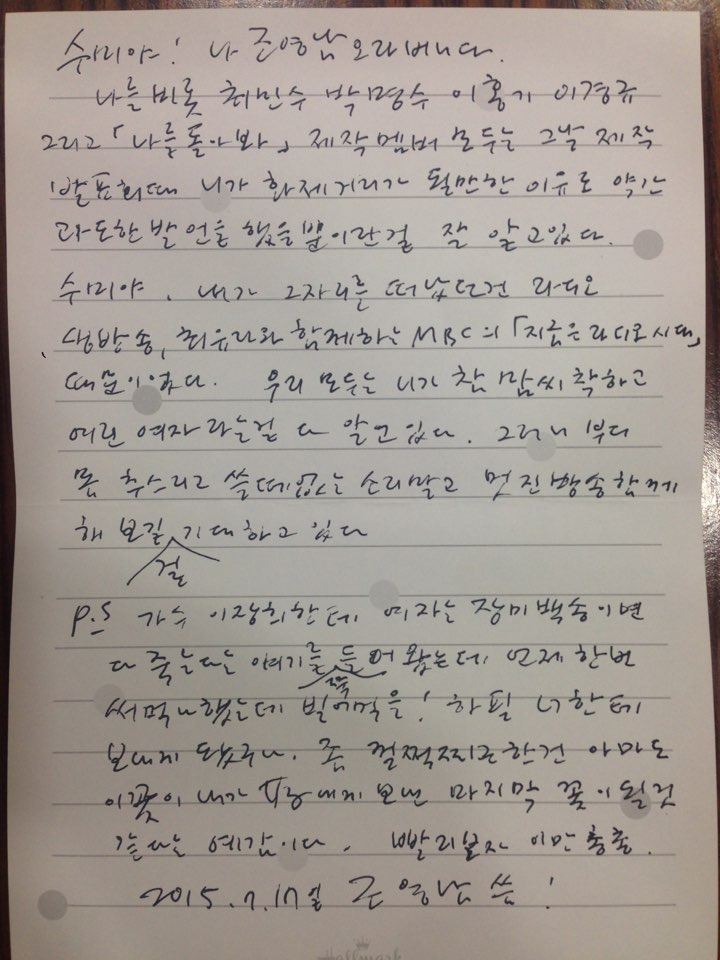 수미야! 나 조영남 오라버니다.
나를 비롯 최민수 박명수 이홍기 이경규
그리고 「나를 돌아봐」 제작멤버 모두는 그날 제작
발표회때 니가 화제거리가 될만한 이유로 약간
과도한 발언을 했을 뿐이란걸 잘 알고있다.
수미야. 내가 그자리를 떠났던건 라디오
생방송, 최유라와 함께하는 MBC의 「지금은 라디오 시대」
때문이었다. 우리 모두는 니가 참 맘씨 착하고
여린 여자라는걸 다 알고 있다. 그러니 부디
몸 추스리고 쓸떼없는 소리말고 멋진 방송 함께
해 보길 기대하고 있다
걸
P.S 가수 이장희한테 여자는 장미 백송이면
다 죽는다는 얘기를 들어 왔는데 언제 한번
써먹나 했는데 빌어먹을! 하필 너한테
보내게 됐구나. 좀 껄쩍찌근한건 아마도
이꽃이 내가 보낸 마지막 꽃이 될것
같다는 예감이다. 빨리보자 이만 총총.
2015.7.17일 조영남 씀!
Hallmark